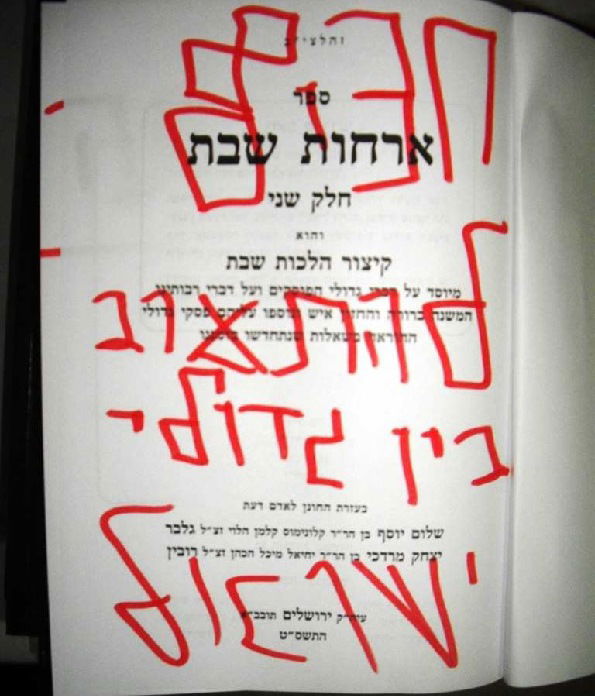 ספר
ארחות שבת
חלק שני
והוא
קיצור הלכות שבת
מיוסד על פסקי גדולי הפוסקים ועל דברי רבותינו
המשנה ברורה והחזון איש ונוספו עליהם פסקי גדולי
ההוראה בשאלות שנתחדשו
בין גדולי
בעזרת החונן לאדם דעת
שלום יוסף בן הר״ר קלונימוס קלמן הלוי זצ״ל גלבר
יצחק מרדכי בן הר״ר יחיאל מיכל הכהן זצ״ל רובין
ישראל
עיה״ק ירושלים תובב״א
התשס״ט